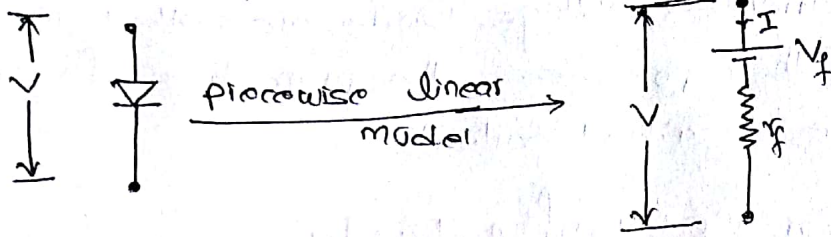 V
piecewise linear
model
V
I
V_f
r_f